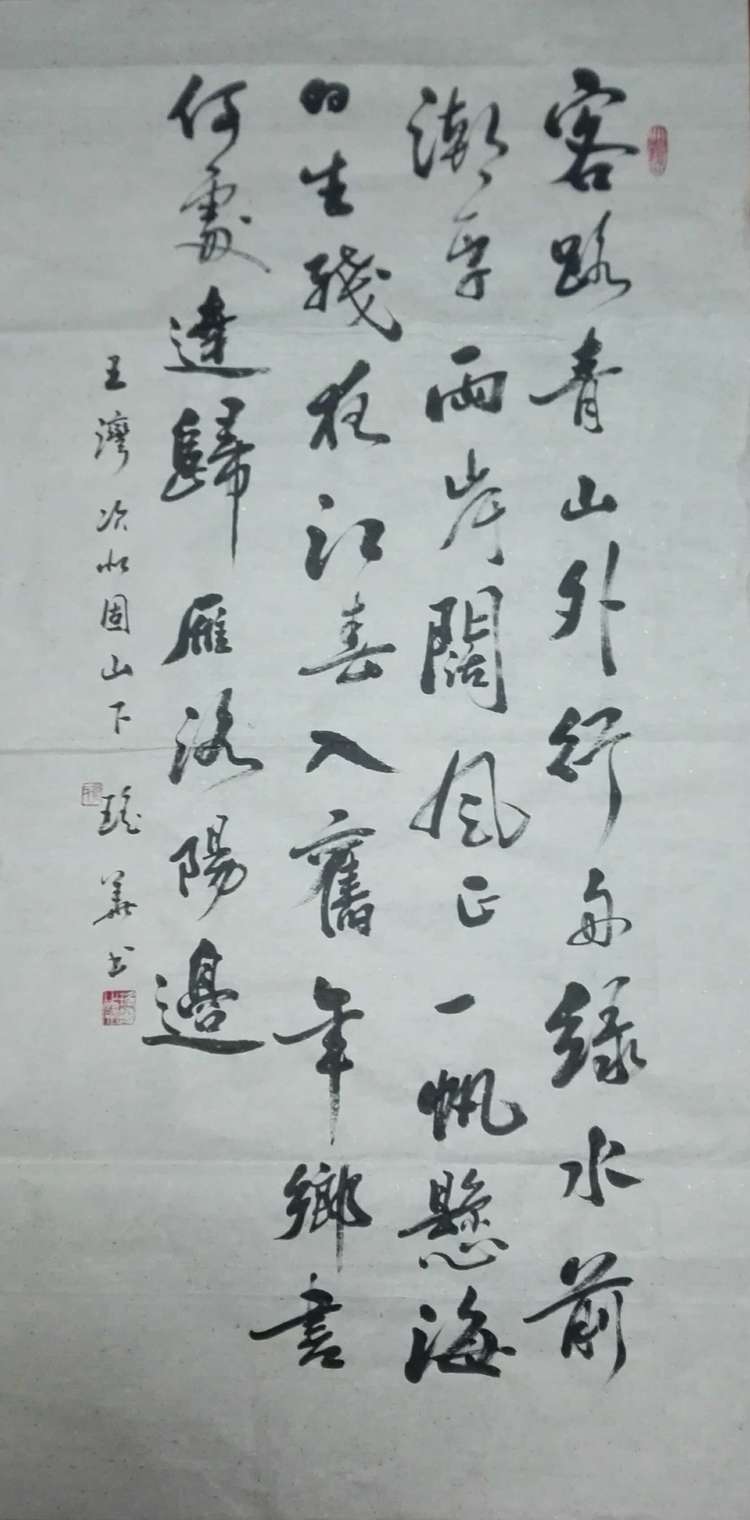 客路青山外行舟綠水前
潮平兩岸闊風正一帆懸海
日生殘夜江春入舊年鄉書
何處達歸雁洛陽邊
王灣次北固山下 華书